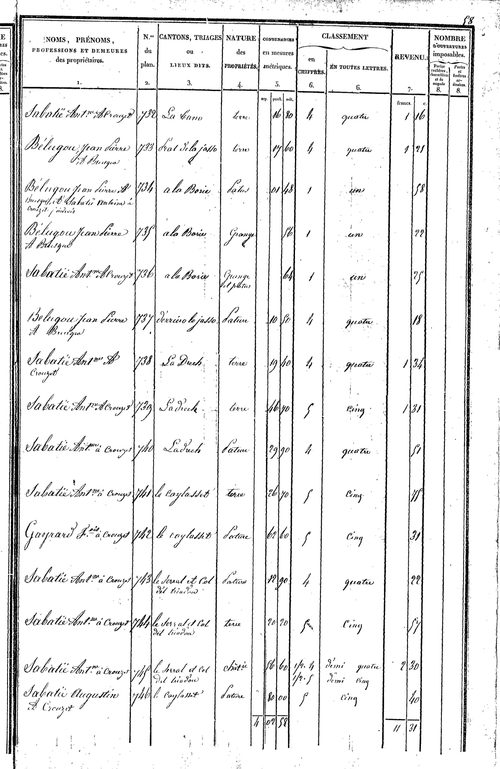 58
NOMS, PRÉNOMS, PROFESSIONS ET DEMEURES des propriétaires. 1.
N.os du plan. 2.
CANTONS, TRIAGES ou LIEUX DITS. 3.
NATURE des PROPRIÉTÉS. 4.
CONTENANCES en mesures métriques. 5.
CLASSEMENT
en CHIFFRES. 6.
EN TOUTES LETTRES. 6.
REVENU. 7.
NOMBRE D'OUVERTURES imposables.
8. 8.
francs. c.
Sabatié Ant.ne A Crouzet 732 La Cam terre 16 80 4 quatre 1 16
Bélugou Jean Pierre 733 Prat de la jasso terre 17 60 4 quatre 1 21
A Buscque
Bélugou Jean Pierre A 734 a la Borie Patus 01 48 1 un 58
Buscque et Sabatié Antoine à
Crouzet
Bélugou Jean Pierre 735 à la Borie Grange 56 1 un 22
A Buscque
Sabatié Ant.ne A Crouzet 736 a la Borie Grange 64 1 un 25
et patus
Bélugou Jean Pierre 737 derrieio la jasso Pature 10 50 4 quatre 18
A Buscque
Sabatié Ant.ne A 738 La Duch terre 19 40 4 quatre 1 34
Crouzet
Sabatié Ant.ne A Crouzet 739 La duch terre 46 70 5 cinq 1 31
Sabatié Ant.ne à Crouzet 740 La duch Pature 29 90 4 quatre 51
Sabatié Ant.ne à Crouzet 741 le coylasset terre 26 70 5 Cinq 75
Gayrard F.ois à Crouzet 742 le coylasset Pature 62 60 5 Cinq 31
Sabatié Ant.ne à Crouzet 743 le Serral et Col Pature 12 90 4 quatre 22
Sabatié Ant.ne à Crouzet 744 le Serral et Col terre 20 20 5 Cinq 57
Sabatié Ant.ne à Crouzet 745 le Serral et Col 56 60 1/2. 4 demi quatre 2 30
1/2. 5 demi cinq
Sabatié Augustin 746 le coylasset Pature 80 00 5 cinq 40
A Crouzet
4 02 58 11 31